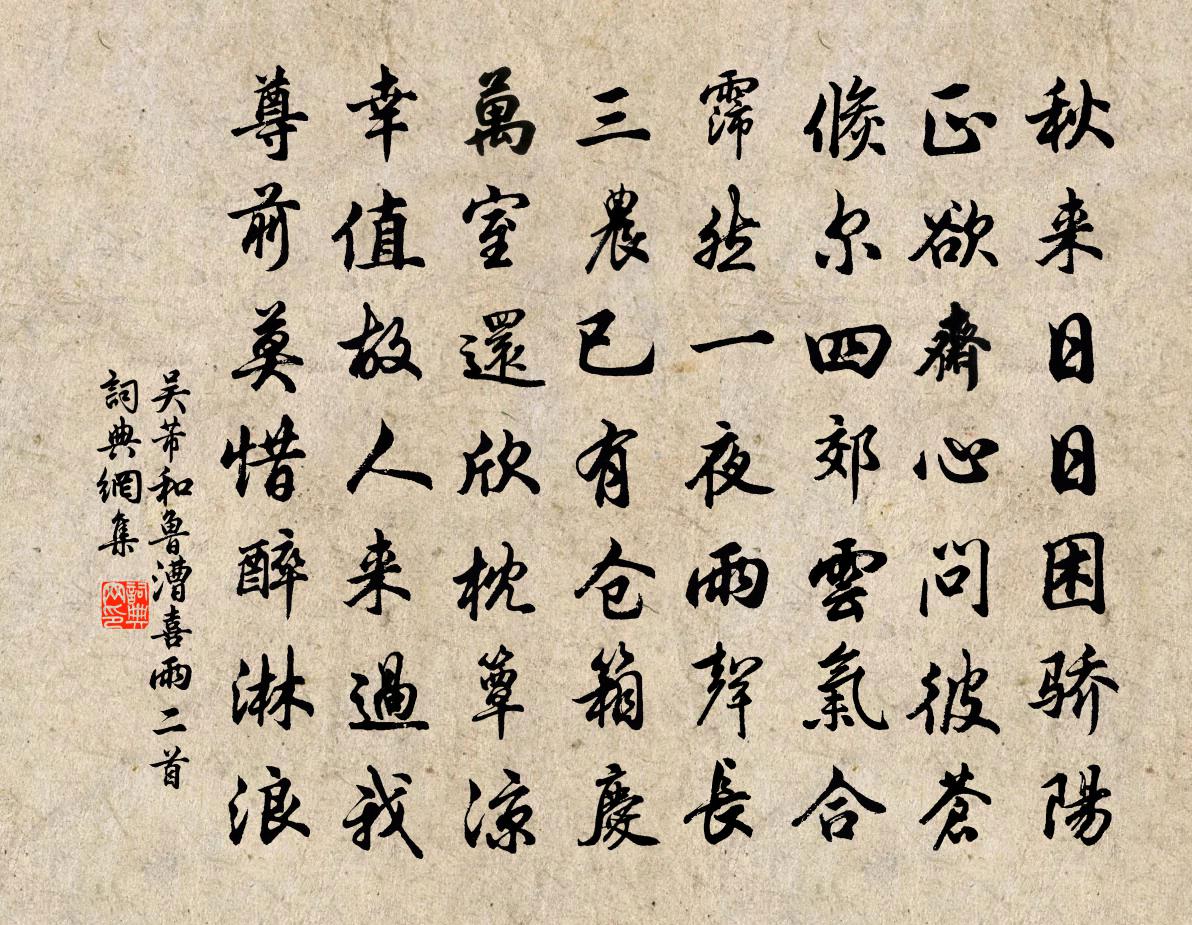 秋来日日困骄陽
正欲齋心问彼蒼
倏尔四郊雲氣合
霈然一夜雨聲長
三農已有仓箱慶
萬室還欣枕簟凉
幸值故人来過我
尊前莫惜醉淋浪
吴芾和鲁漕喜雨二首
詞典網集
詞典网印